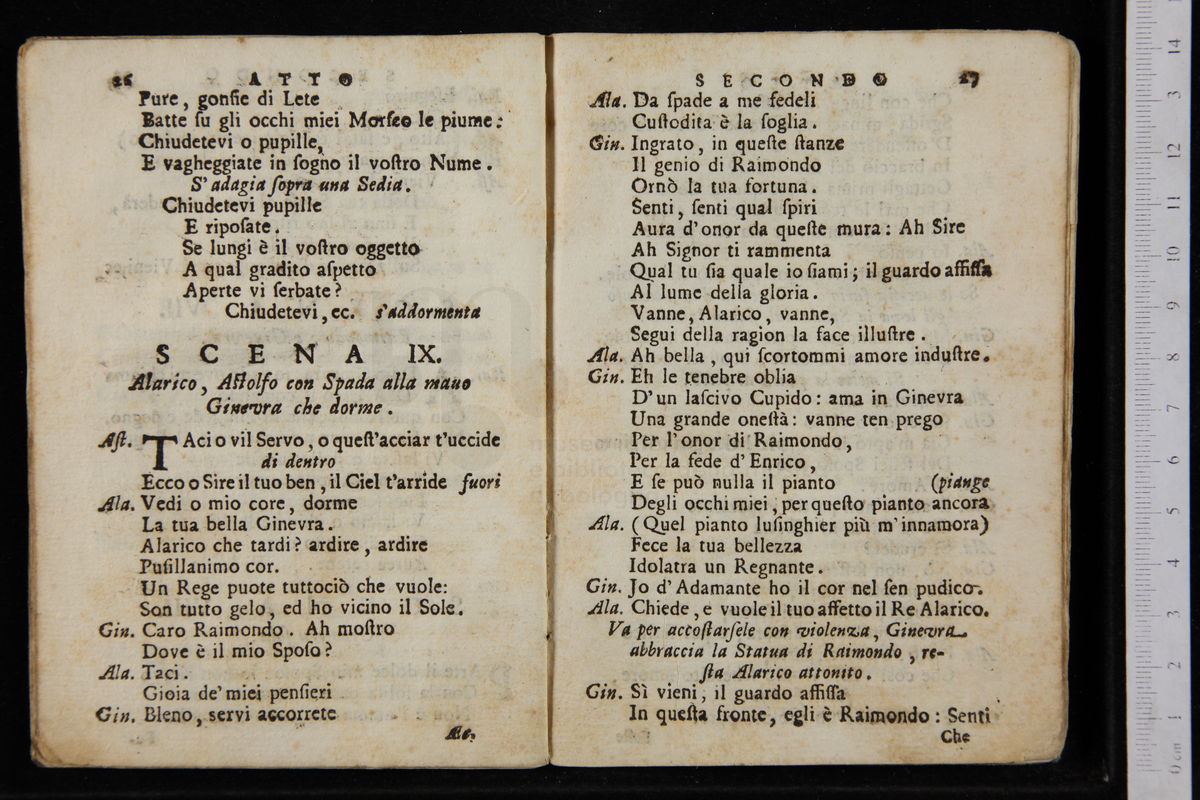 26 ATTO
Pure, gonfie di Lete
Batte ſu gli occhi miei Morfeo le piume:
Chiudetevi o pupille,
E vagheggiate in ſogno il voſtro Nume.
S'adagia ſopra una Sedia.
Chiudetevi pupille
E ripoſate.
Se lungi è il voſtro oggetto
A qual gradito aſpetto
Aperte vi ſerbate?
Chiudetevi, ec. s'addormenta
SCENA IX.
Alarico, Aſtolfo con Spada alla mano
Ginevra che dorme.
Aſt. TAci o vil Servo, o queſt'acciar t'uccide
di dentro
Ecco o Sire il tuo ben, il Ciel t'arride fuori
Ala. Vedi o mio core, dorme
La tua bella Ginevra.
Alarico che tardi? ardire, ardire
Puſillanimo cor.
Un Rege puote tuttociò che vuole:
Son tutto gelo, ed ho vicino il Sole.
Gin. Caro Raimondo. Ah moſtro
Dove è il mio Spoſo?
Ala. Taci.
Gioia de' miei penſieri
Gin. Bleno, servi accorrete
SECONDO 27
Ala. Da ſpade a me fedeli
Cuſtodita è la ſoglia.
Gin. Ingrato, in queſte ſtanze
Il genio di Raimondo
Ornò la tua fortuna.
Senti, ſenti qual ſpiri
Aura d'onor da queſte mura: Ah Sire
Ah Signor ti rammenta
Qual tu ſia quale io ſiami; il guardo affiſſa
Al lume della gloria.
Vanne, Alarico, vanne,
Segui della ragion la face illuſtre.
Ala. Ah bella, qui ſcortommi amore induſtre.
Gin. Eh le tenebre oblia
D'un laſcivo Cupido: ama in Ginevra
Una grande oneſtà: vanne ten prego
Per l'onor di Raimondo,
Per la fede d'Enrico,
E ſe può nulla il pianto (piange
Degli occhi miei, per queſto pianto ancora
Ala. (Quel pianto luſinghier più m'innamora)
Fece la tua bellezza
Idolatra un Regnante.
Gin. Jo d'Adamante ho il cor nel ſen pudico.
Ala. Chiede, e vuole il tuo affetto il Re Alarico.
Va per accoſtarſele con violenza, Ginevra
abbraccia la Statua di Raimondo, re-
ſta Alarico attonito.
Gin. Sì vieni, il guardo affiſſa
In queſta fronte, egli è Raimondo: Senti
Che